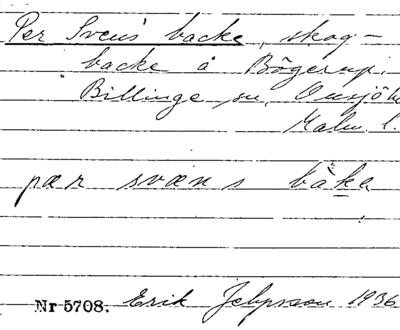 Per Svens backe, skog-
backe å Bögerup,
Billinge sn, Onsjö h
Malm. l.
pær svæns bàkə
Nr 5708. Erik Jeppsson 1936